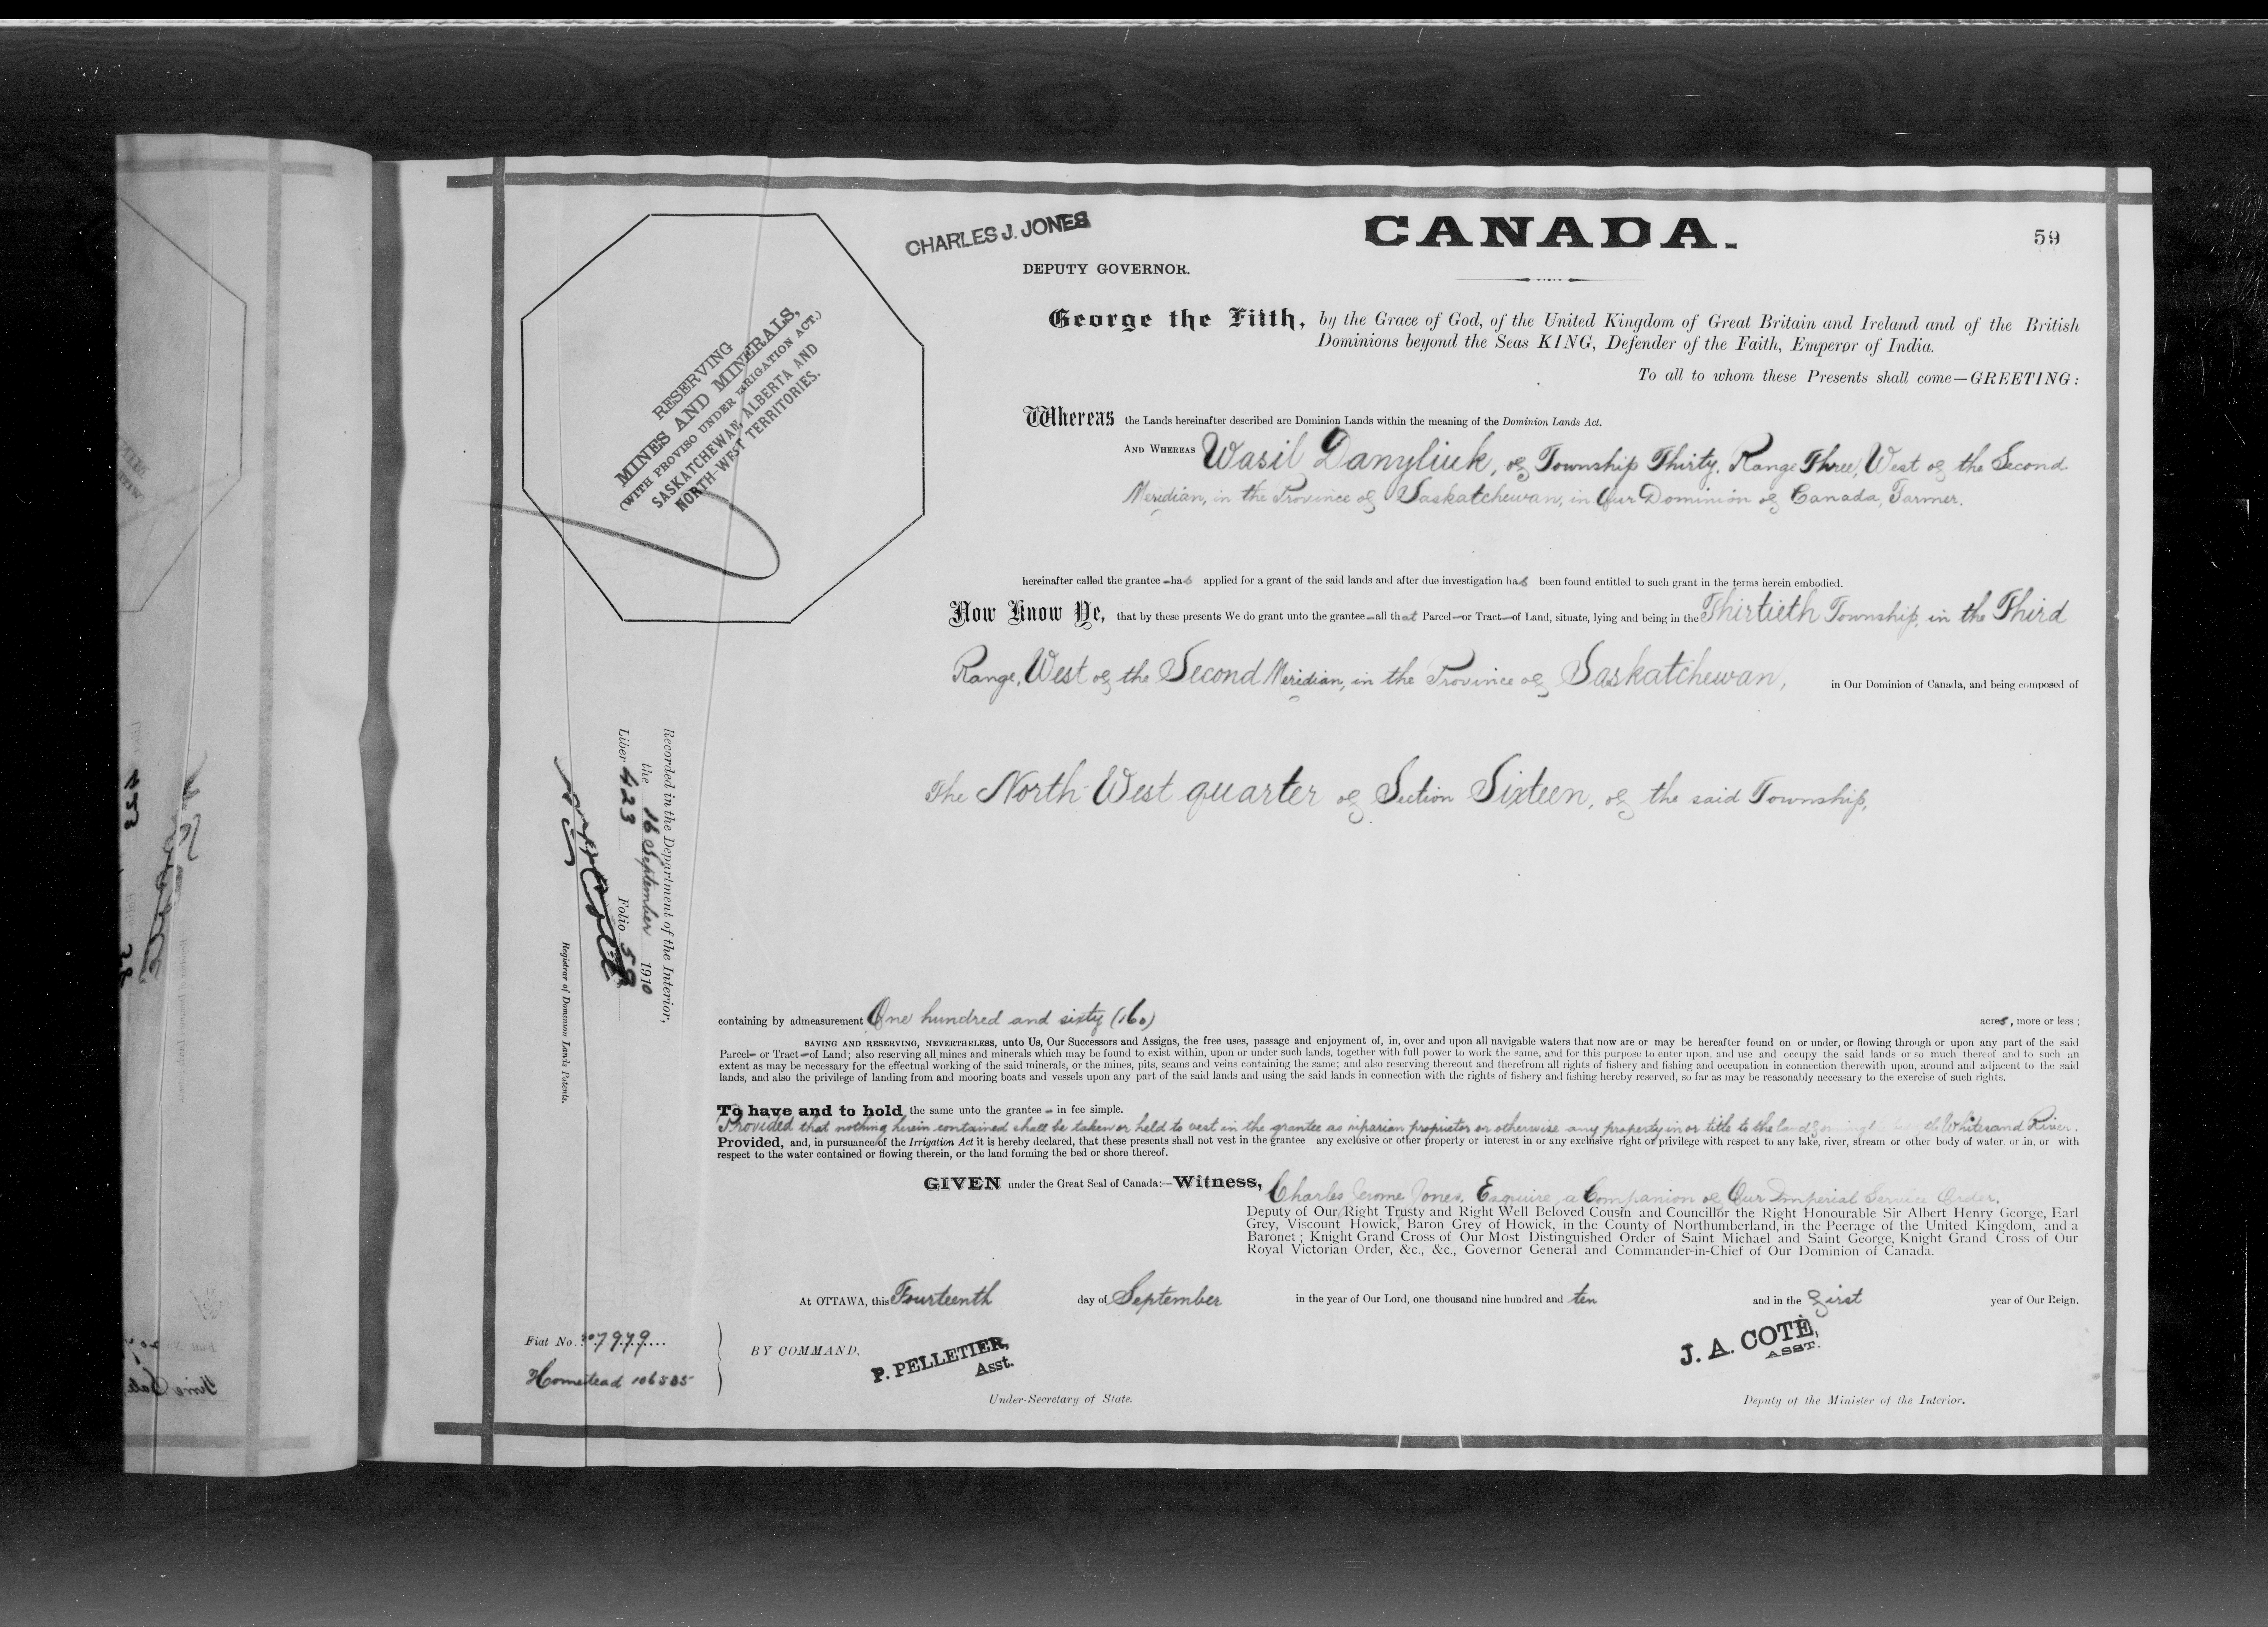 CHARLES J. JONES
CANADA.
59
DEPUTY GOVERNOR.
RESERVING
MINES AND MINERALS,
(WITH PROVISO UNDER IRRIGATION ACT.)
SASKATCHEWAN, ALBERTA AND
NORTH-WEST TERRITORIES.
George the Fifth, by the Grace of God, of the United Kingdom of Great Britain and Ireland and of the British
Dominions beyond the Seas KING, Defender of the Faith, Emperor of India.
To all to whom these Presents shall come—GREETING:
Whereas the Lands hereinafter described are Dominion Lands within the meaning of the Dominion Lands Act.
AND WHEREAS Wasil Danyliuk, of Township Thirty, Range Three, West of the Second
Meridian, in the Province of Saskatchewan, in Our Dominion of Canada, Farmer.
hereinafter called the grantee - has applied for a grant of the said lands and after due investigation has been found entitled to such grant in the terms herein embodied.
Now Know Ye, that by these presents We do grant unto the grantee - all that Parcel - or Tract - of Land, situate, lying and being in the Thirtieth Township, in the Third
Range, West of the Second Meridian, in the Province of Saskatchewan, in Our Dominion of Canada, and being composed of
The North West quarter of Section Sixteen, of the said Township,
Recorded in the Department of the Interior,
the 16 September 1910
Liber 423 Folio 59
Registrar of Dominion Lands Patents.
containing by admeasurement One hundred and sixty (160) acres, more or less;
SAVING AND RESERVING, NEVERTHELESS, unto Us, Our Successors and Assigns, the free uses, passage and enjoyment of, in, over and upon all navigable waters that now are or may be hereafter found on or under, or flowing through or upon any part of the said
Parcel - or Tract - of Land; also reserving all mines and minerals which may be found to exist within, upon or under such lands, together with full power to work the same, and for this purpose to enter upon, and use and occupy the said lands or so much thereof and to such an
extent as may be necessary for the effectual working of the said minerals, or the mines, pits, seams and veins containing the same; and also reserving thereout and therefrom all rights of fishery and fishing and occupation in connection therewith upon, around and adjacent to the said
lands, and also the privilege of landing from and mooring boats and vessels upon any part of the said lands and using the said lands in connection with the rights of fishery and fishing hereby reserved, so far as may be reasonably necessary to the exercise of such rights.
To have and to hold the same unto the grantee - in fee simple.
Provided that nothing herein contained shall be taken or held to vest in the grantee as riparian proprietor or otherwise any property in or title to the land Whitesand River.
Provided, and, in pursuance of the Irrigation Act it is hereby declared, that these presents shall not vest in the grantee any exclusive or other property or interest in or any exclusive right or privilege with respect to any lake, river, stream or other body of water, or in, or with
respect to the water contained or flowing therein, or the land forming the bed or shore thereof.
GIVEN under the Great Seal of Canada:—Witness, Charles Jerome Jones, Esquire, a Companion of Our Imperial Service Order.
Deputy of Our Right Trusty and Right Well Beloved Cousin and Councillor the Right Honourable Sir Albert Henry George, Earl
Grey, Viscount Howick, Baron Grey of Howick, in the County of Northumberland, in the Peerage of the United Kingdom, and a
Baronet; Knight Grand Cross of Our Most Distinguished Order of Saint Michael and Saint George, Knight Grand Cross of Our
Royal Victorian Order, &c., &c., Governor General and Commander-in-Chief of Our Dominion of Canada.
At OTTAWA, this Fourteenth day of September in the year of Our Lord, one thousand nine hundred and ten and in the First year of Our Reign.
Fiat No. 207979
Homestead 106535
BY COMMAND.
P. PELLETIER,
Asst.
Under-Secretary of State.
J. A. COTÉ,
ASST.
Deputy of the Minister of the Interior.